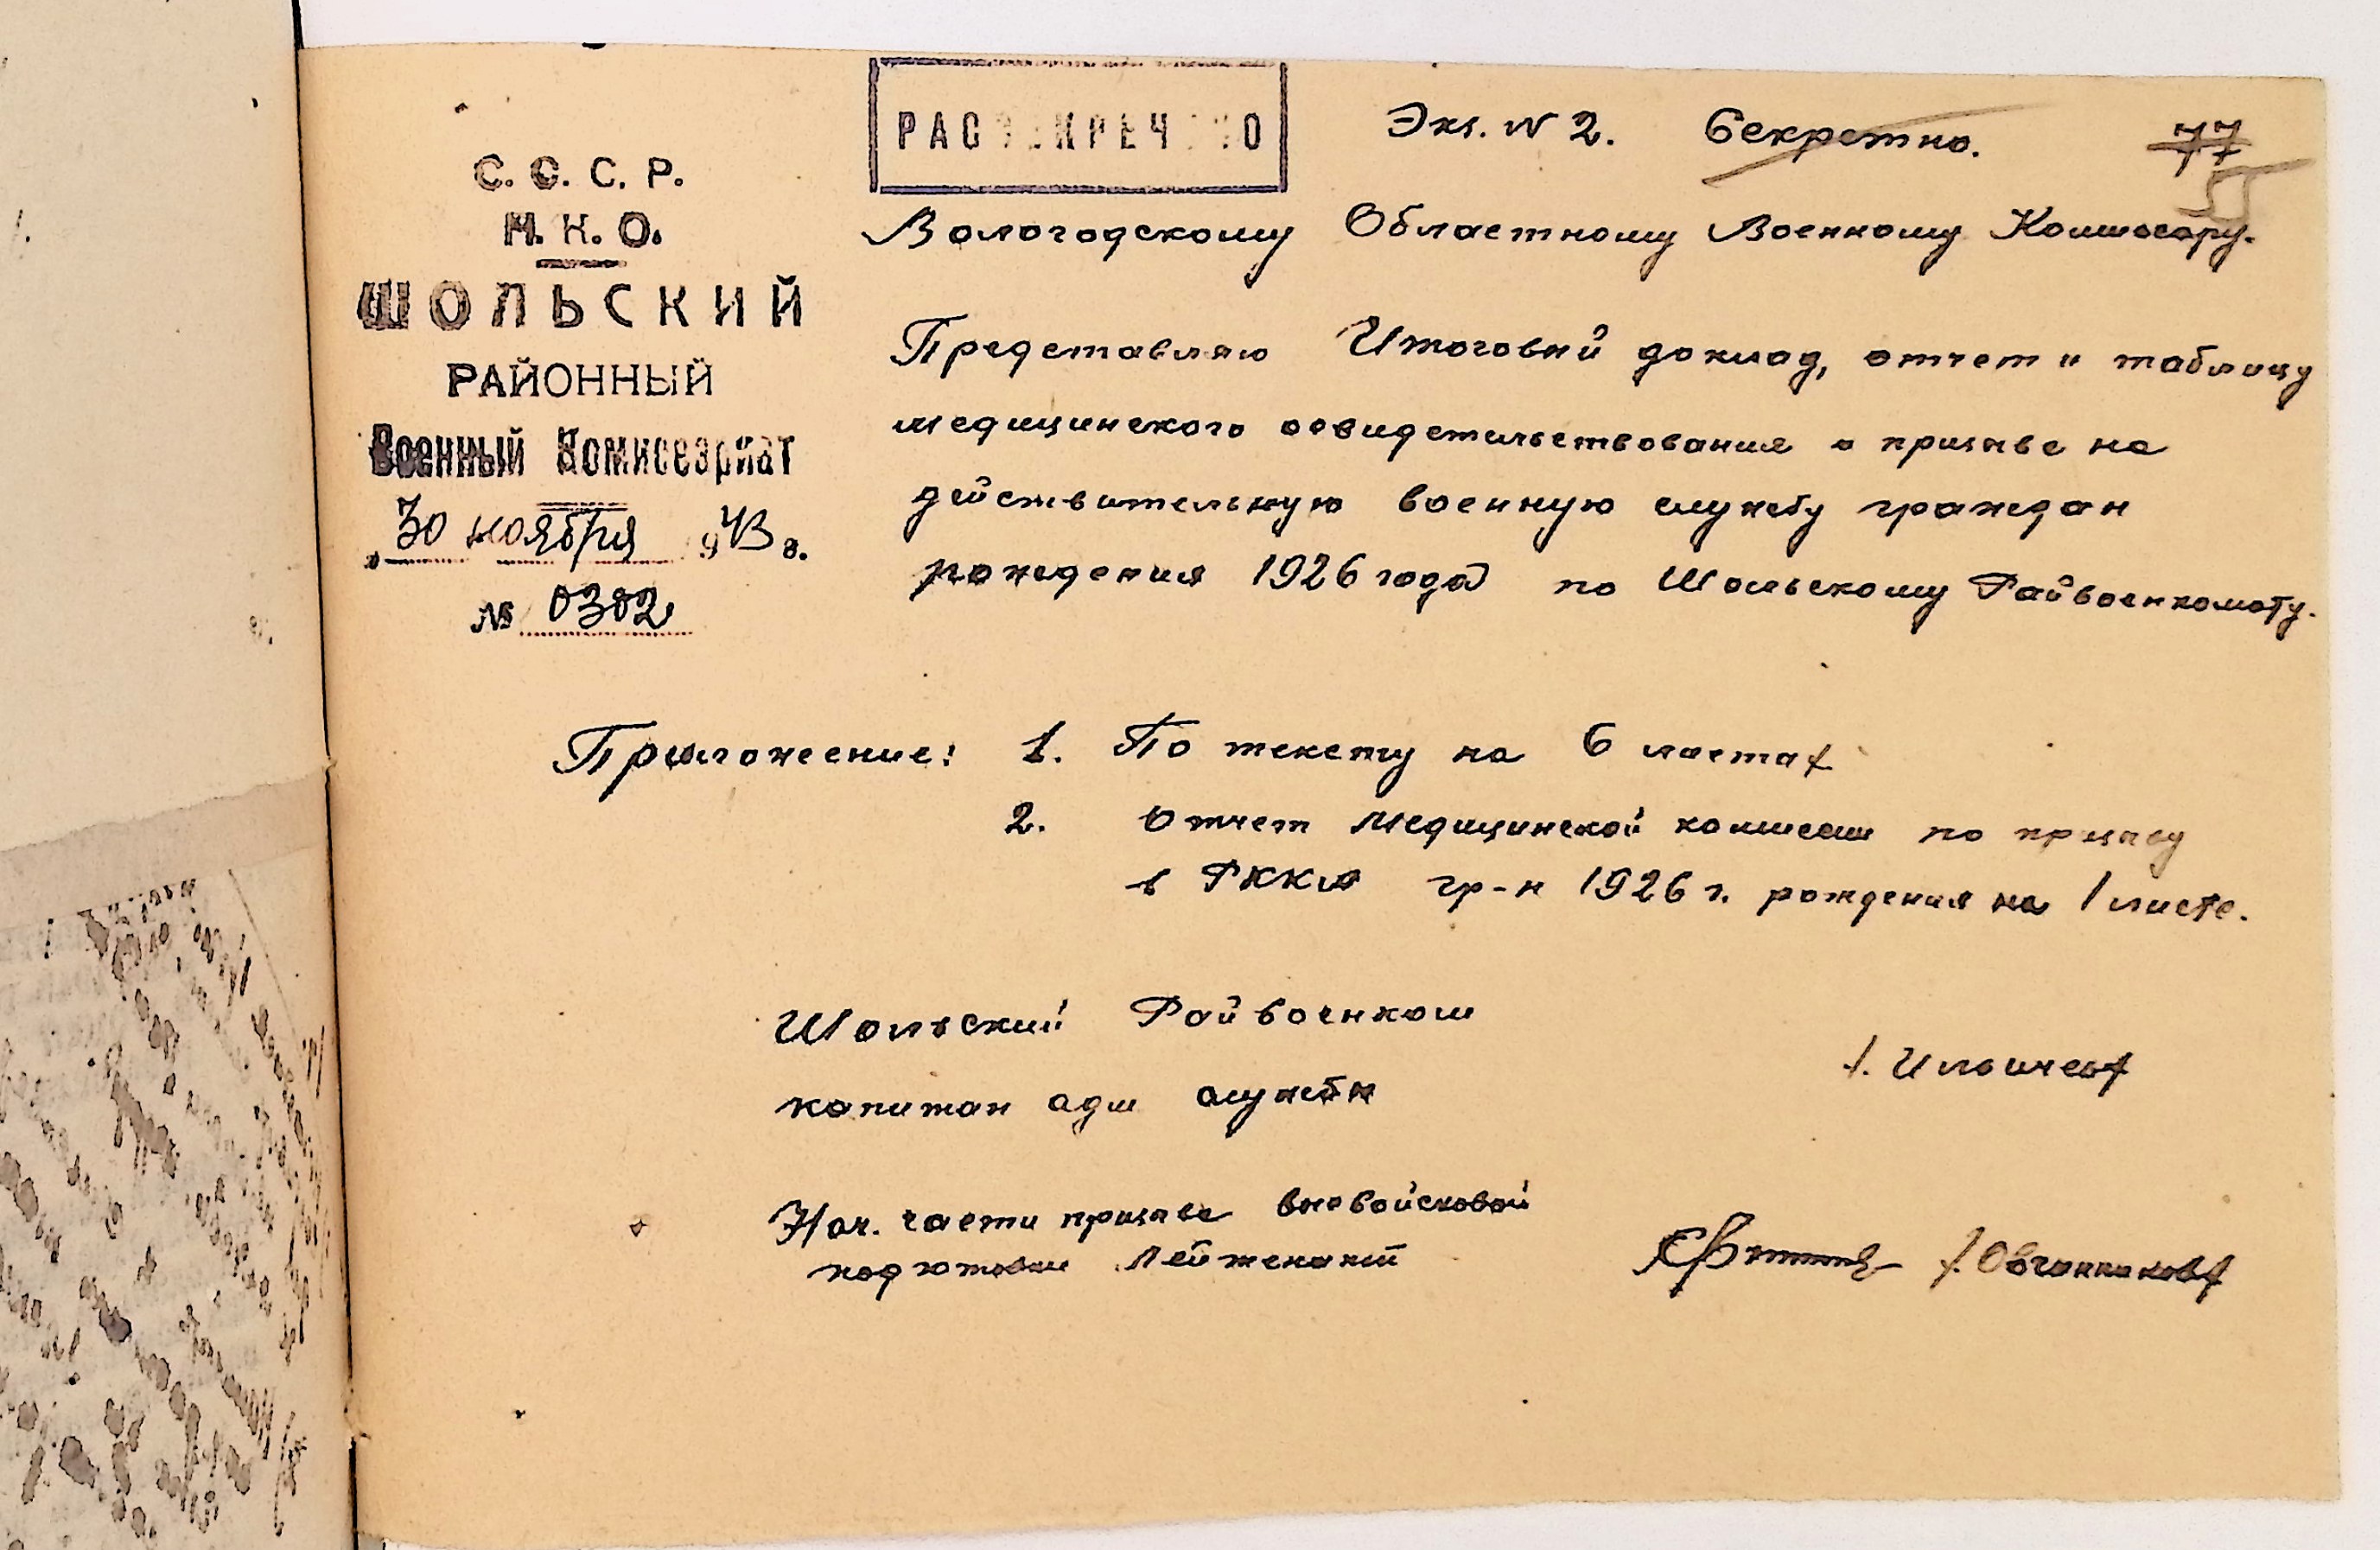 РАССЕКРЕЧЕНО
Экз. № 2. Секретно.
77
С. С. С. Р.
Н. К. О.
ШОЛЬСКИЙ
РАЙОННЫЙ
Военный Комиссариат
„30 ноября 943 г.
№ 0302
Вологодскому Областному Военному Комиссару.
Представляю Итоговый доклад, отчет и таблицу
медицинского освидетельствования о призыве на
действительную военную службу граждан
рождения 1926 года по Шольскому Райвоенкомату.
Приложение: 1. По тексту на 6 листах
2. Отчет медицинской комиссии по призыву
в РККА гр-н 1926 г. рождения на 1 листе.
Шольский Райвоенком
капитан адм службы /. Ильичев/
Нач. части призыва вневойсковой
подготовки Лейтенант /. Овчинников/